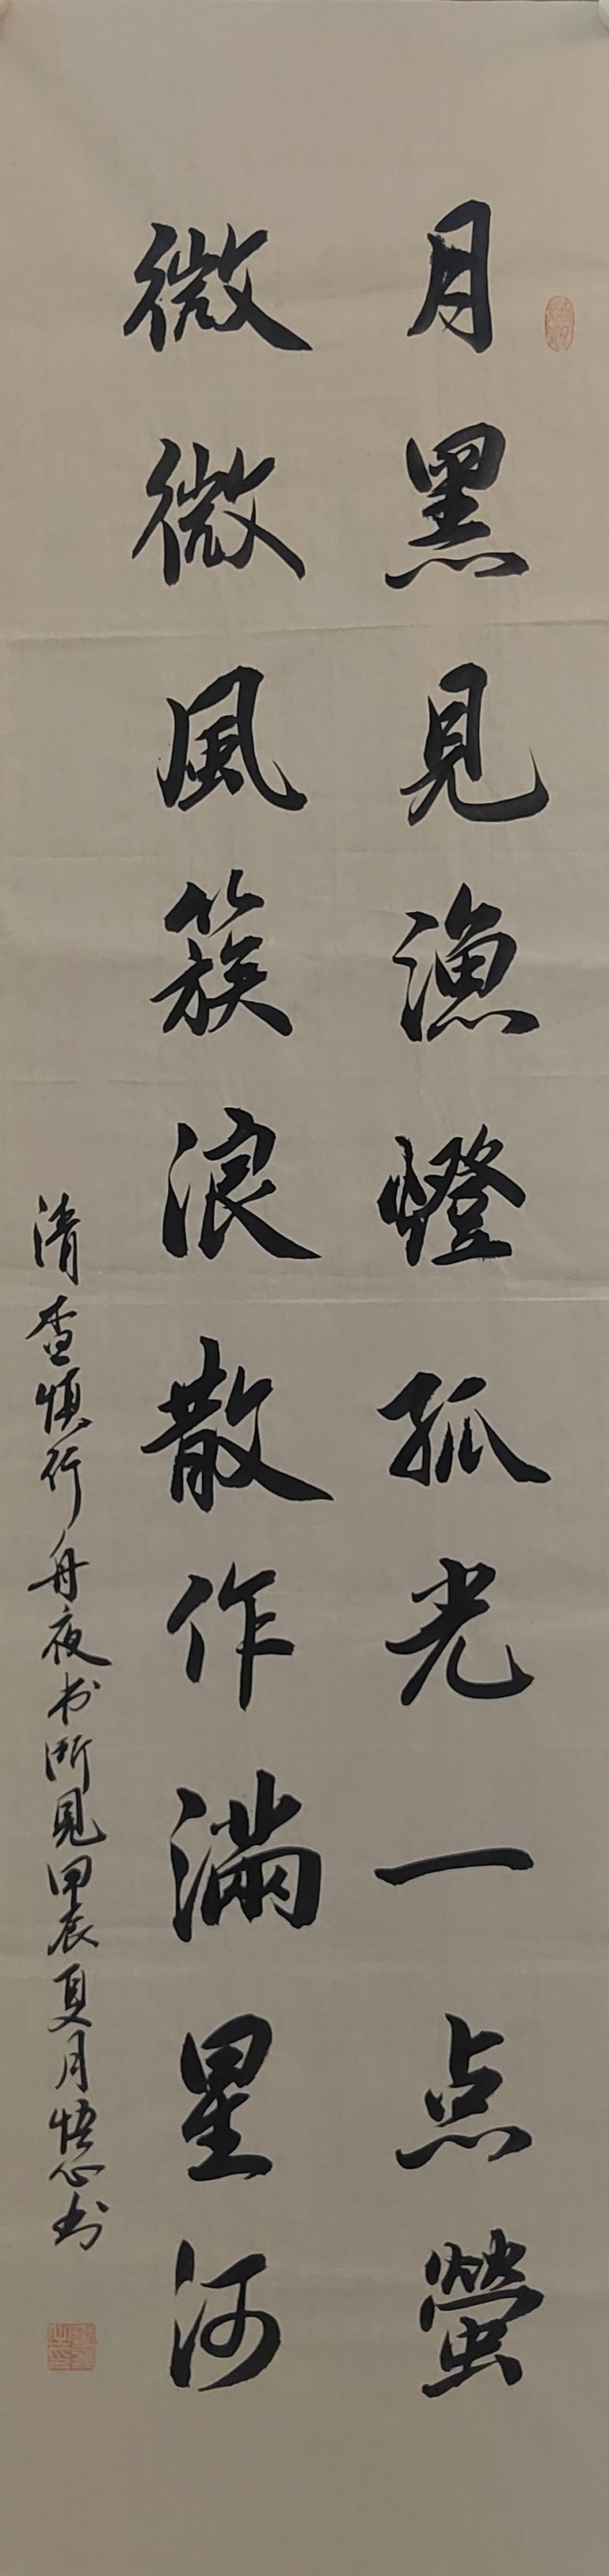 月黑見漁燈孤光一点螢
微微風簇浪散作滿星河
清查慎行舟夜书所見甲辰夏月悟心书